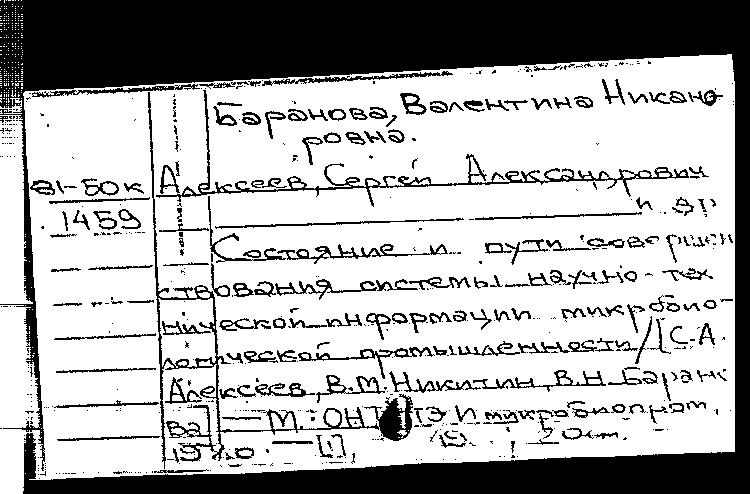 Баранова, Валентина Никано-
ровна.
81-50к Алексеев, Сергей Александрович
1459 и др
Состояние и пути совершен
ствования системы научно-тех
нической информации микробио-
логической промышленности / [С.А.
Алексеев, В.М. Никитин, В.Н. Баран
ва] — М.: ОНТ микробиопром,
— [1], 19 20см.